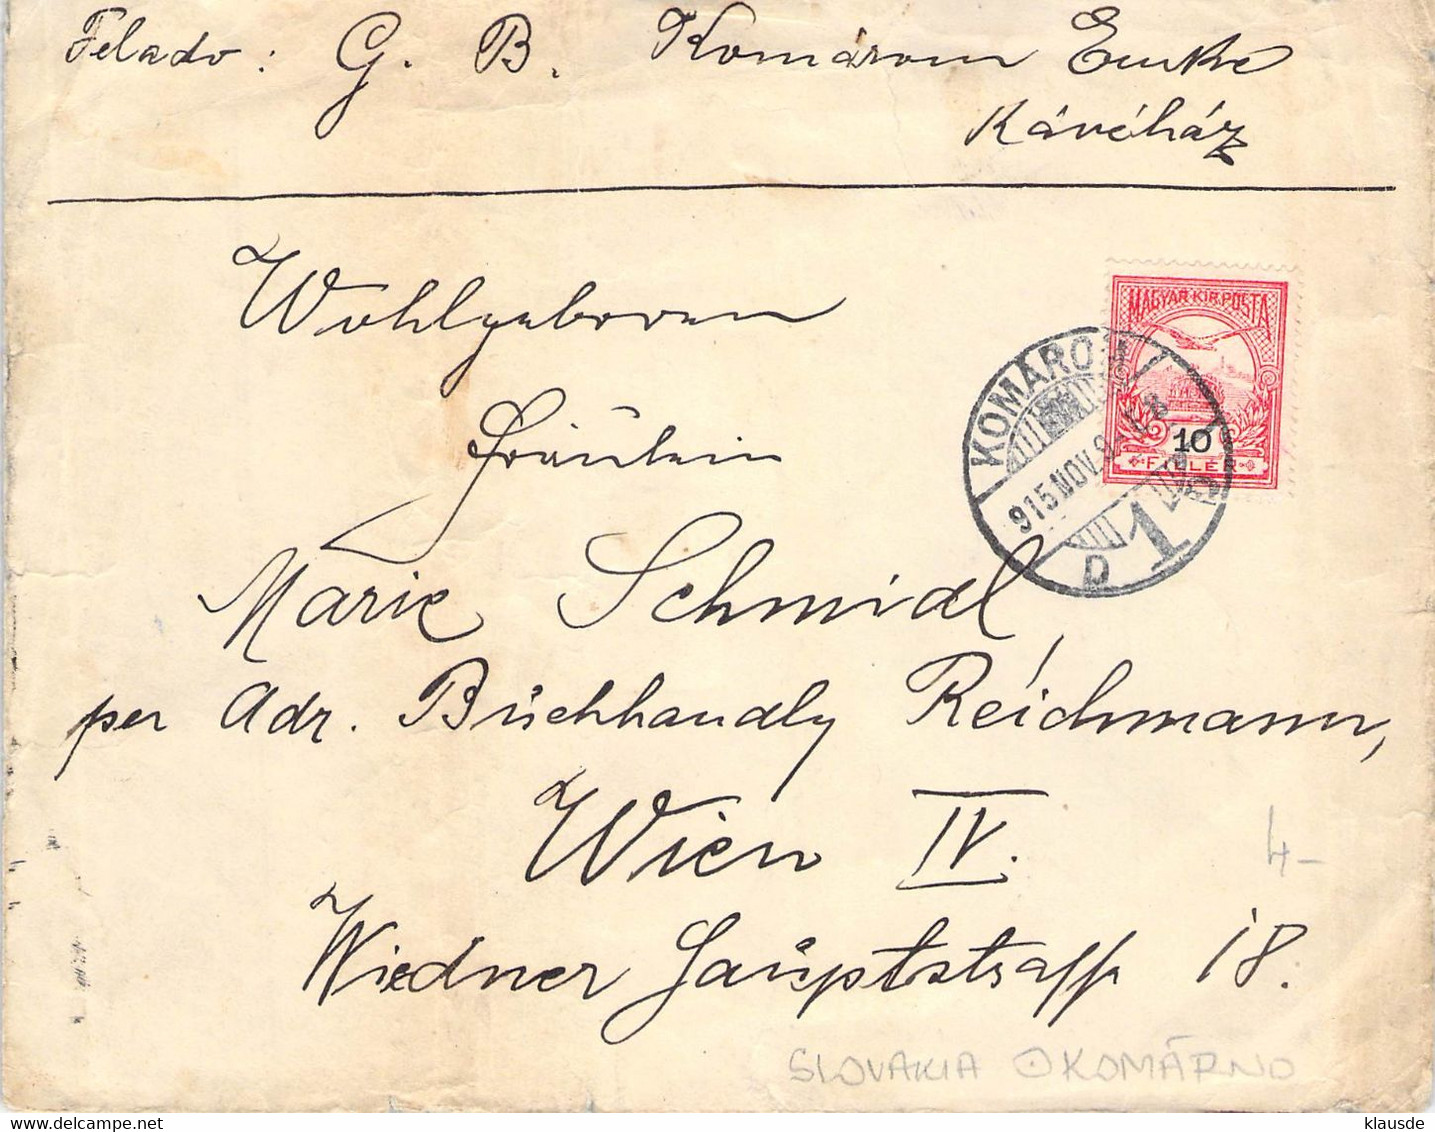 Felado: G. B. Komárom Emke
Kávéház
Wohlgeboren
Fräulein
Marie Schmidl,
per Adr. Buchhandlg Reichmann,
Wien IV.
Wiedner Hauptstrasse 18.
MAGYAR KIR. POSTA
10
FILLÉR
KOMÁROM
915 NOV. 9
D
1
4-
SLOVAKIA KOMÁRNO
klausde